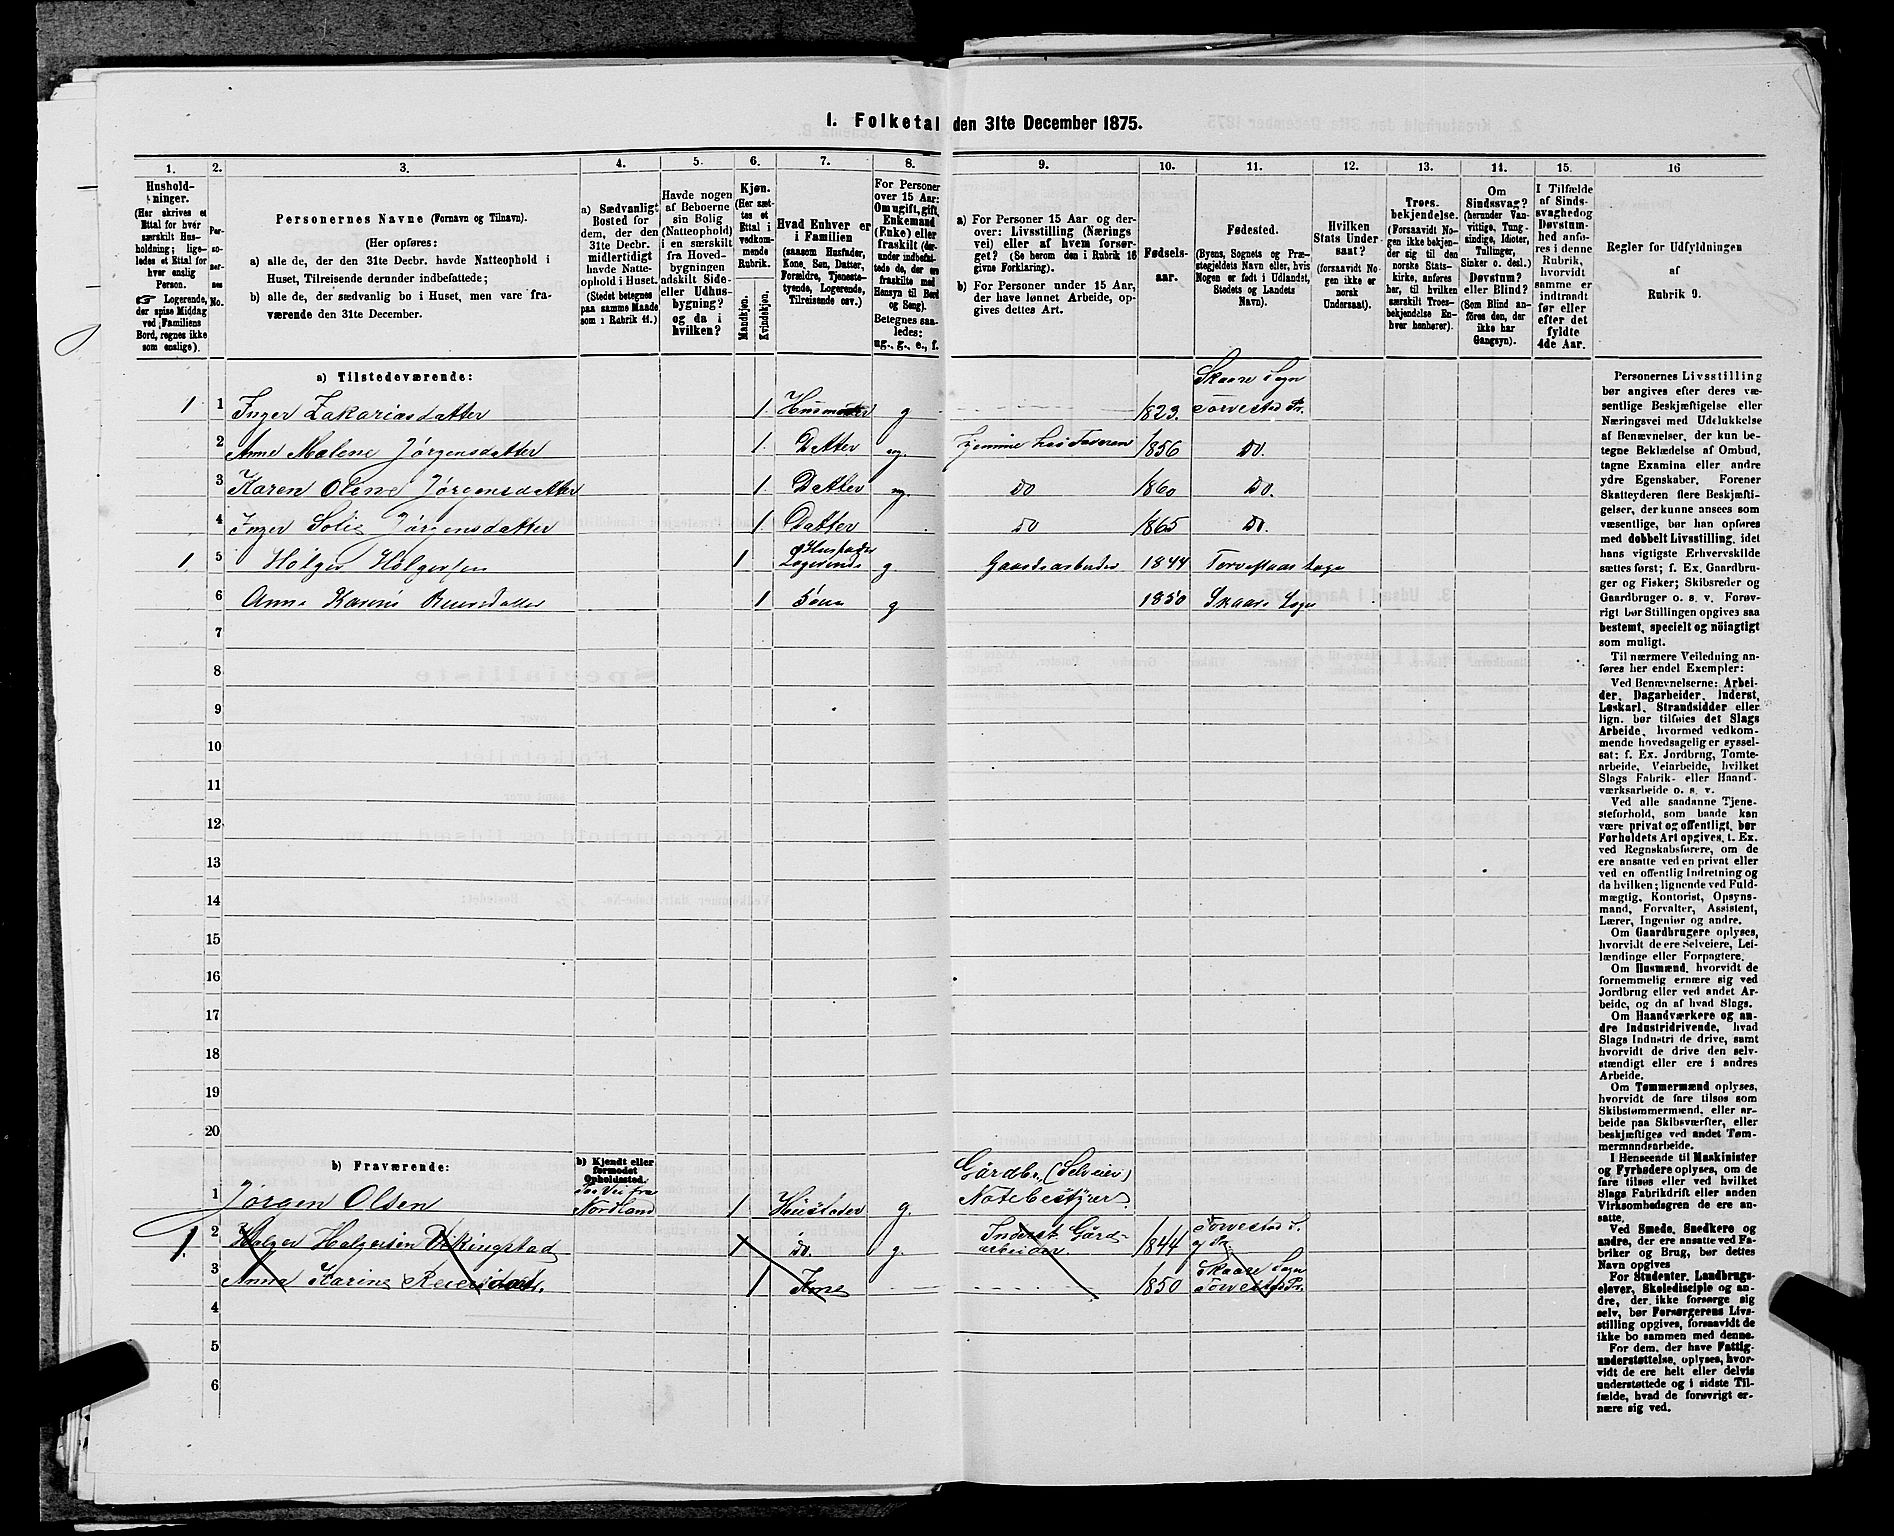 1. Folketal den 31te December 1875.
1.
2.
3.
4.
5.
6.
7.
8.
9.
10.
11.
12.
13.
14.
15.
16
Hushold-
ninger.
(Her skrives et
Ettal for hver
særskilt Hus-
holdning; lige-
ledes et Ettal for
hver enslig
Person.
☞ Logerende,
der spise Middag
ved Familiens
Bord, regnes ikke
som enslige).
Per-
so-
ner-
nes
No.
Personernes Navne (Fornavn og Tilnavn).
(Her opføres:
a) alle de, der den 31te Decbr. havde Natteophold i
Huset, Tilreisende derunder indbefattede;
b) alle de, der sædvanlig bo i Huset, men vare fra-
værende den 31te December.
a) Sædvanligt
Bosted for
dem, der den
31te Decbr.
midlertidigt
havde Natte-
ophold i Huset.
(Stedet betegnes
paa samme Maade
som i Rubrik 11.)
Havde nogen
af Beboerne
sin Bolig
(Natteophold)
i en særskilt
fra Hoved-
bygningen
adskilt Side-
eller Udhus-
bygning?
og da i
hvilken?
Kjøn.
(Her sæt-
tes et
Ettal i
vedkom-
mende
Rubrik.
Mandkjøn.
Kvindekjøn.
Hvad Enhver er
i Familien
(saasom Husfader,
Kone, Søn, Datter,
Forældre, Tjeneste-
tyende, Logerende,
Tilreisende osv.)
For Personer
over 15 Aar:
Om ugift, gift,
Enkemand
(Enke) eller
fraskilt (der-
under indbefat-
tede de, der ere
fraskilte med
Hensyn til Bord
og Seng).
Betegnes saa-
ledes:
ug., g., e., f.
a) For Personer 15 Aar og der-
over: Livsstilling (Nærings
vei) eller af hvem forsør-
get? (Se herom den i Rubrik 16
givne Forklaring).
b) For Personer under 15 Aar,
der have lønnet Arbeide, op-
gives dettes Art.
Fødsels-
aar.
Fødested.
(Byens, Sognets og Præ-
stegjeldets Navn eller, hvis
Nogen er født i Udlandet,
Stedets og Landets
Navn).
Hvilken
Stats Under-
saat?
(forsaavidt No-
gen ikke er
norsk
Undersaat).
Troes-
bekjendelse.
(Forsaavidt No-
gen ikke bekjen-
der sig til den
norske Stats-
kirke, anføres
her, til hvilken
særskilt Troes-
bekjendelse En-
hver henhører).
Om
Sindssvag?
(herunder Van-
vittige, Tung-
sindige, Idioter,
Tullinger,
Sinker o. desl.)
Døvstum?
eller Blind?
(Som Blind an-
føres den, der
ikke har
Gangsyn).
I Tilfælde
af Sinds-
svaghed og
Døvstum-
hed anfø-
res i denne
Rubrik,
hvorvidt
samme er
indtraadt
før eller
efter det
fyldte
4de Aar.
Regler for Udfyldningen
af
Rubrik 9.
a) Tilstedeværende:
1 1 Inger Zakariasdatter 1 Husmoder g 1823. Skaare Sogn Torvestad Pr.
2 Anne Malene Jørgensdatter 1. Datter ug. Hjemme hos Faderen 1856 Do.
3 Karen Oline Jørgensdatter 1. Datter ug. Do 1860 Do.
4 Inger Jørgensdatter 1 Datter Do 1865 Do.
1. 5 Holger Holgersen 1 Husfader Logerende g Gaardsarbeider 1844 Sogn
6 Anna 1 g 1850 Skaare Sogn
7
8
9
10
11
12
13
14
15
16
17
18
19
20
b) Fraværende:
b) Kjendt eller
formodet
Opholdssted.
1 Jørgen Olsen Paa Vei fra Nordland 1 Husfader g. Gårdbr. (Selveier) Notebestyrer
1. 2 Holger Holgersen Vikingstad 1 Do. g. Inderst Gård-arbeider. 1844 Torvestad S. og Pr.
3 Anna Karine Reiersdat. 1 Kone 1850 Skaare Sogn Torvestad Pr.
4
5
6
Personernes Livsstilling
bør angives efter deres væ-
sentlige Beskjæftigelse eller
Næringsvei med Udelukkelse
af Benævnelser, der kun be-
tegne Beklædelse af Ombud,
tagne Examina eller andre
ydre Egenskaber. Forener
Skatteyderen flere Beskjæfti-
gelser, der kunne ansees som
væsentlige, bør han opføres
med dobbelt Livsstilling, idet
hans vigtigste Erhvervskilde
sættes først; f. Ex. Gaardbru-
ger og Fisker; Skibsreder og
Gaardbruger o. s. v. Forøv-
rigt bør Stillingen opgives saa
bestemt, specielt og nøiagtigt
som muligt.
Til nærmere Veiledning an-
føres her endel Exempler:
Ved Benævnelserne: Arbei-
der, Dagarbeider, Inderst,
Løskarl, Strandsidder eller
lign. bør tilføies det Slags
Arbeide, hvormed vedkom-
mende hovedsagelig er syssel-
sat; f. Ex. Jordbrug, Tomte-
arbeide, Veiarbeide, hvilket
Slags Fabrik- eller Haand-
værksarbeide o. s. v.
Ved alle saadanne Tjene-
steforhold, som baade kan
være privat og offentlig, bør
Forholdets Art opgives, t. Ex.
ved Regnskabsførere, om de
ere ansatte ved en privat eller
ved en offentlig Indretning og
da hvilken; lignende ved Fuld-
mægtig, Kontorist, Opsyns-
mand, Forvalter, Assistent,
Lærer, Ingeniør og andre.
Om Gaardbrugere oplyses,
hvorvidt de ere Selveiere, Lei-
lændinge eller Forpagtere.
Om Husmænd, hvorvidt de
fornemmelig ernære sig ved
Jordbrug eller ved andet Ar-
beide, og da af hvad Slags.
Om Haandværkere og an-
dre Industridrivende, hvad
Slags Industri de drive, samt
hvorvidt de drive den selv-
stændigt eller ere i andres
Arbeide.
Om Tømmermænd oplyses,
hvorvidt de fare tilsøs som
Skibstømmermænd, eller ar-
beide paa Skibsværfter, eller
beskjæftiges ved andet Tøm-
mermandsarbeide.
I Henseende til Maskinister
og Fyrbødere oplyses, om de
fare tilsøs eller ved hvilket
Fabrikdrift eller anden
Virksomhedsgren de ere an-
satte.
Ved Smede, Snedkere og
andre, der ere ansatte ved Fa-
briker og Brug, bør dettes
Navn opgives
For Studenter, Landbrugs-
elever, Skoledisciple og an-
dre, der ikke forsørge sig
selv, bør Forsørgerens Livs-
stilling opgives, forsaavidt de
ikke bo sammen med denne.
For dem, der have Fattig-
understøttelse, oplyses, hvor-
vidt de ere helt eller delvis
understøttede og i sidste Til-
fælde, hvad de forøvrigt er-
nære sig ved.